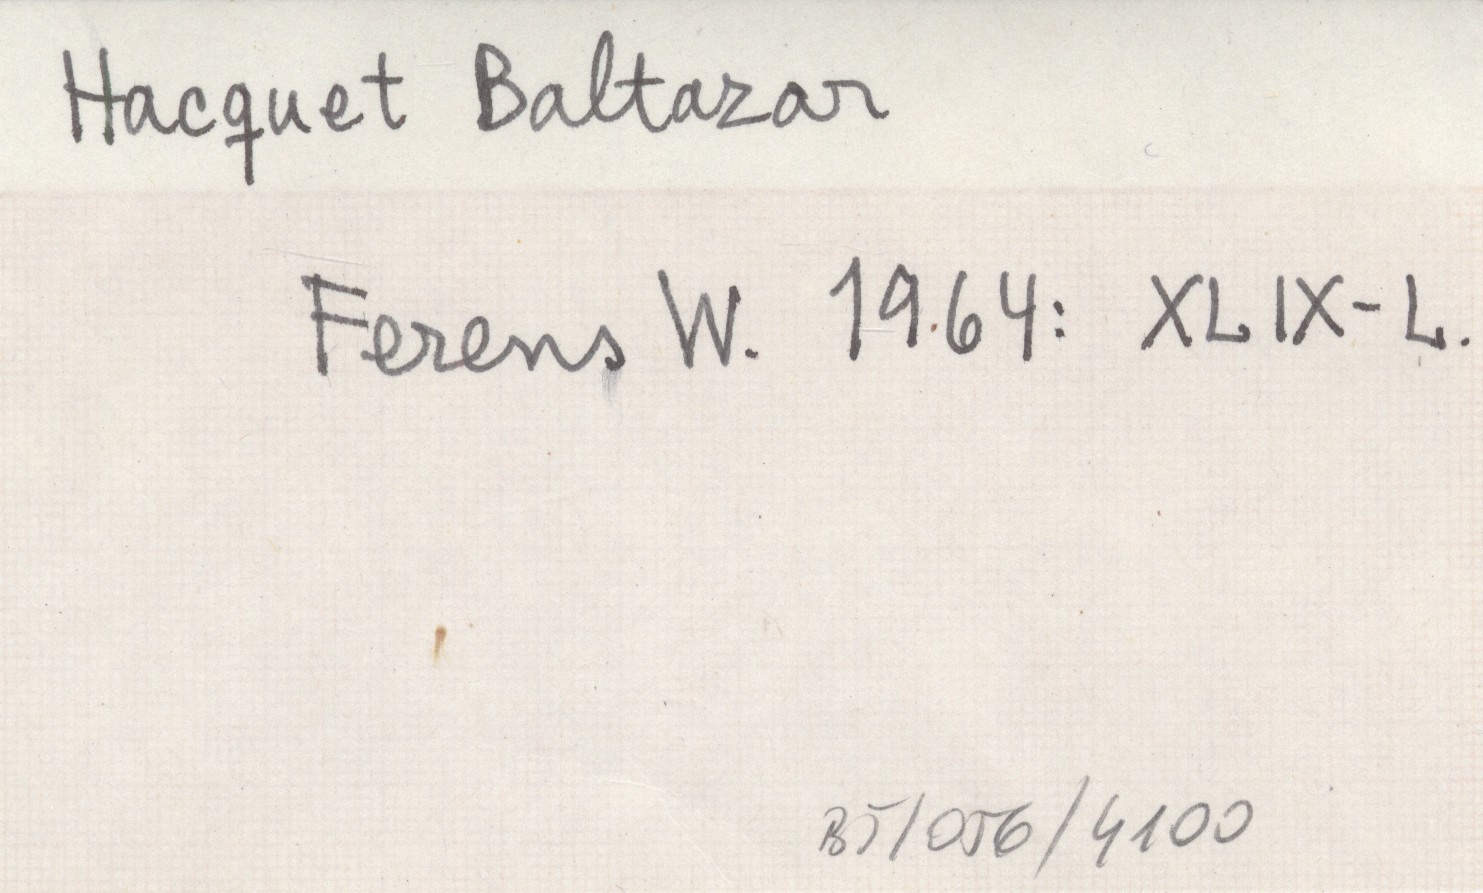 Hacquet Baltazar
Ferens W. 1964: XLIX-L.
BJ/056/4100